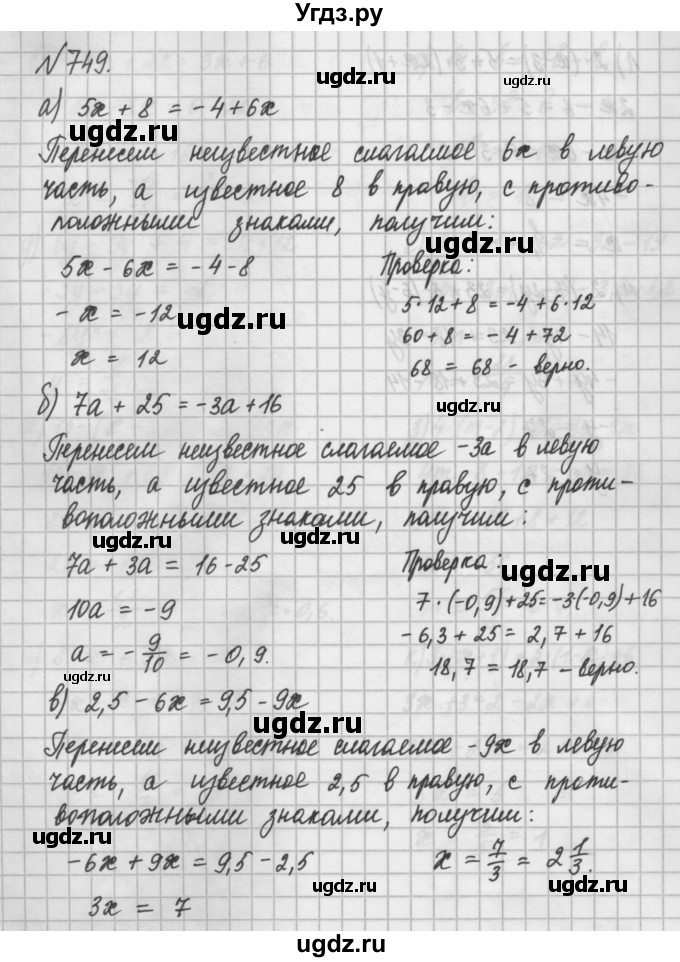 Угдз.ру
№749.
а) 5x + 8 = -4 + 6x
ugdz.ru
ugdz.ru
Перенесем неизвестное слагаемое 6x в левую
часть, а известное 8 в правую, с противо-
ugdz.ru
положными знаками, получим:
ugdz.ru
5x - 6x = -4 - 8
Проверка:
- x = -12
5·12 + 8 = -4 + 6·12
ugdz.ru
60 + 8 = -4 + 72
x = 12
68 = 68 - верно.
б) 7a + 25 = -3a + 16
ugdz.ru
Перенесем неизвестное слагаемое -3a в левую
ugdz.ru
часть, а известное 25 в правую, с проти-
воположными знаками, получим:
ugdz.ru
ugdz.ru
7a + 3a = 16 - 25
Проверка:
ugdz.ru
10a = -9
7·(-0,9)+25=-3(-0,9)+16
-6,3 + 25 = 2,7 + 16
ugdz.ru
a = - 9/10 = -0,9.
18,7 = 18,7 - верно.
ugdz.ru
в) 2,5 - 6x = 9,5 - 9x
ugdz.ru
Перенесем неизвестное слагаемое -9x в левую
часть, а известное 2,5 в правую, с проти-
ugdz.ru
воположными знаками, получим:
ugdz.ru
ugdz.ru
-6x + 9x = 9,5 - 2,5
x = 7/3 = 2 1/3.
ugdz.ru
ugdz.ru
3x = 7
ugdz.ru